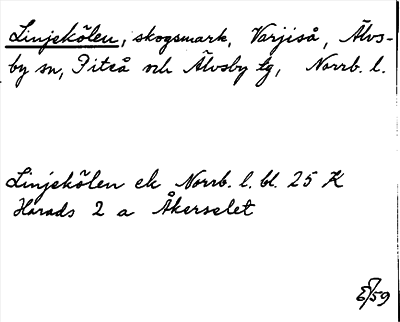 Linjekölen, skogsmark, Varjiså, Älvs-
by sn, Piteå och Älvsby tg, Norrb. l.
Linjekölen ek Norrb. l. bl. 25 K
Harads 2 a Åkerselet
/59